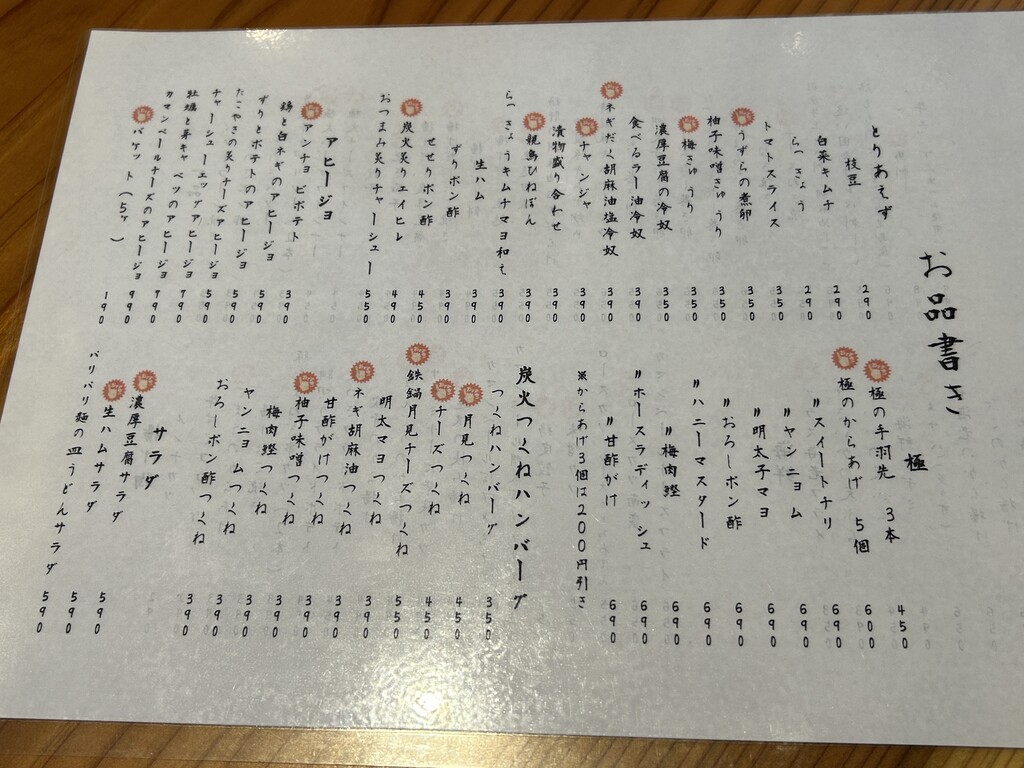 お品書き
とりあえず
枝豆 290
白菜キムチ 290
らっきょう 290
トマトスライス 350
うずらの煮卵 350
柚子味噌きゅうり 350
梅きゅうり 350
濃厚豆腐の冷奴 350
食べるラー油冷奴 390
ネギだく胡麻油塩冷奴 390
チャンジャ 390
漬物盛り合わせ 390
親鳥ひねぽん 390
らっきょうキムチマヨ和え 390
生ハム 390
ずりポン酢 390
せせりポン酢 450
炭火炙りエイヒレ 490
おつまみ炙りチャーシュー 550
アヒージョ
アンチョビポテト 390
鶏と白ネギのアヒージョ 590
ずりとポテトのアヒージョ 590
たこやきの炙りチーズアヒージョ 590
チャーシューエッグアヒージョ 790
牡蠣と芽キャベツのアヒージョ 990
カマンベールチーズのアヒージョ 990
バケット(5ヶ) 190
極
極の手羽先 3本 450
極のからあげ 5個 600
〃スイートチリ 690
〃ヤンニョム 690
〃明太子マヨ 690
〃おろしポン酢 690
〃ハニーマスタード 690
〃梅肉鰹 690
〃ホースラディッシュ 690
〃甘酢がけ 690
※からあげ3個は200円引き
炭火つくねハンバーグ
つくねハンバーグ 350
月見つくね 450
チーズつくね 450
鉄鍋月見チーズつくね 550
明太マヨつくね 390
ネギ胡麻油つくね 390
甘酢がけつくね 390
柚子味噌つくね 390
梅肉鰹つくね 390
ヤンニョムつくね 390
おろしポン酢つくね 390
サラダ
濃厚豆腐サラダ 590
生ハムサラダ 590
パリパリ麺の皿うどんサラダ 590